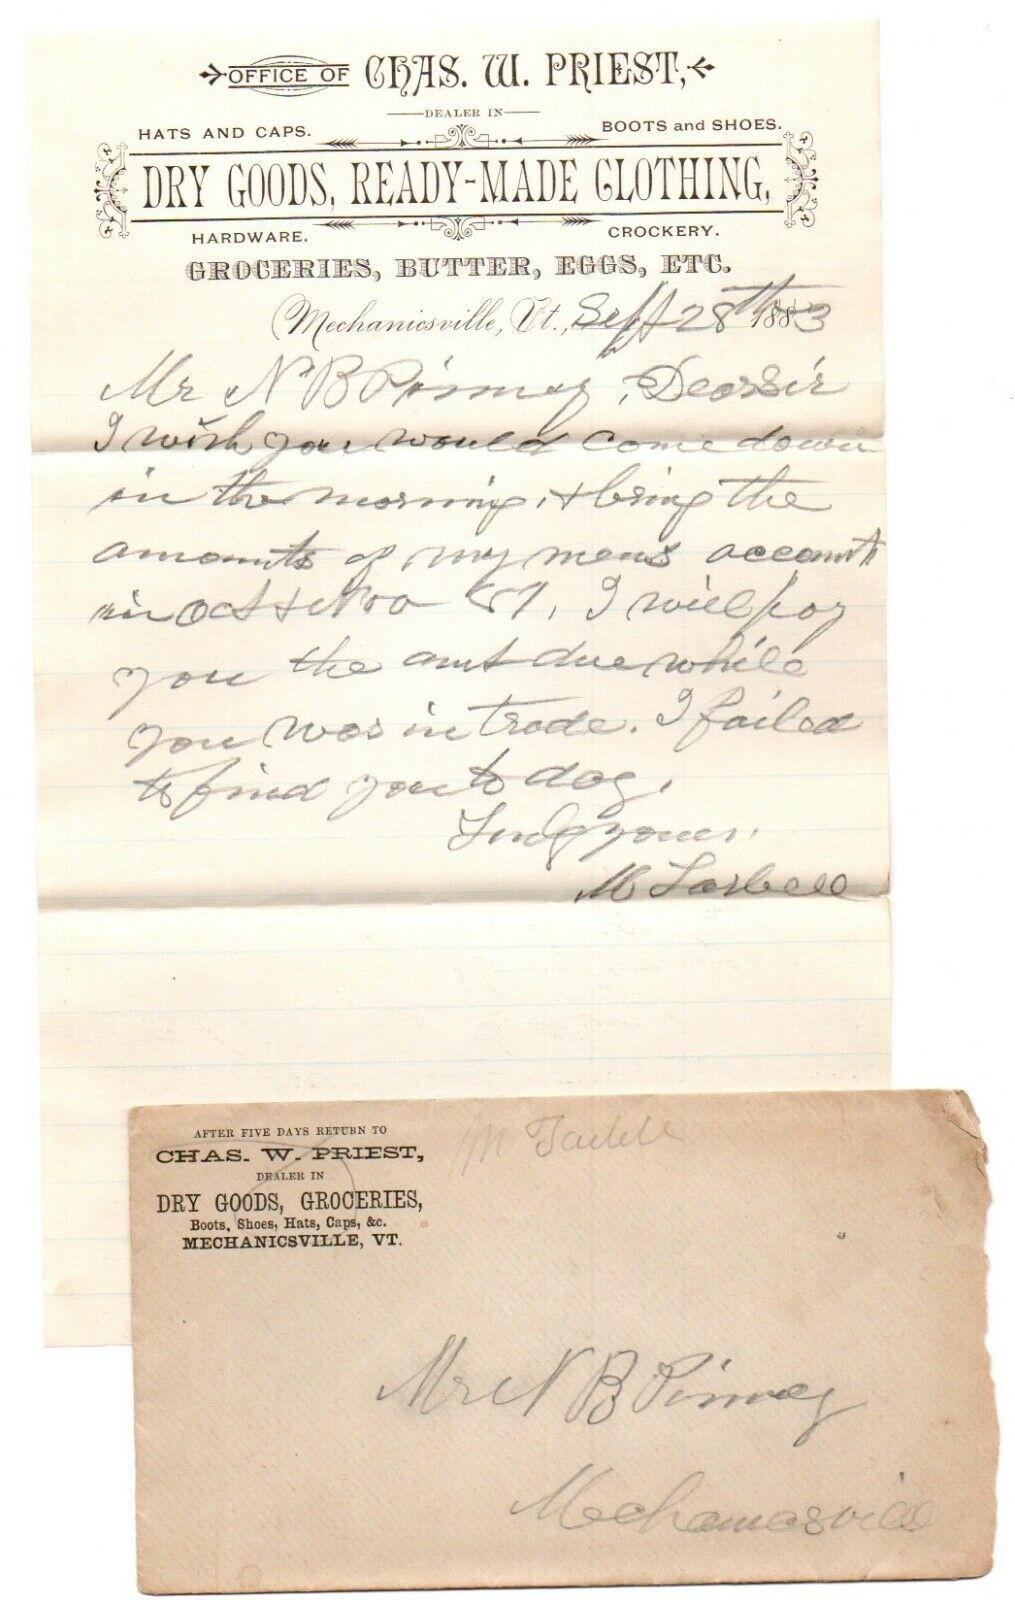 OFFICE OF CHAS. W. PRIEST,
DEALER IN
HATS AND CAPS. BOOTS and SHOES.
DRY GOODS, READY-MADE CLOTHING,
HARDWARE. CROCKERY.
GROCERIES, BUTTER, EGGS, ETC.
Mechanicsville, Vt., Sept 28th 1883
Mr N B Pinney, Dear Sir
I wish you would come down
in the morning, & bring the
amounts of my mens accounts
in Oct & Nov I will pay
you the amt due while
you was in trade. I failed
to find you to day.
Truly yours,
M Tarbell
AFTER FIVE DAYS RETURN TO
CHAS. W. PRIEST,
DEALER IN
DRY GOODS, GROCERIES,
Boots, Shoes, Hats, Caps, &c.
MECHANICSVILLE, VT.
M Tarbell
Mr N B Pinney
Mechanicsville